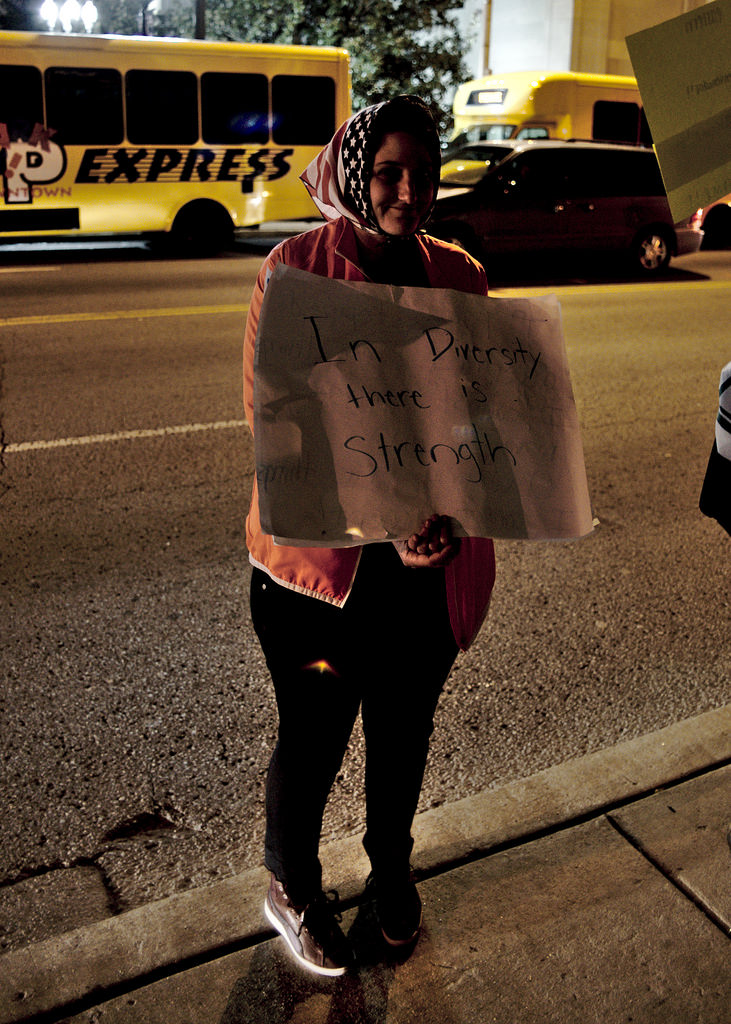 EXPRESS
In Diversity
there is
Strength